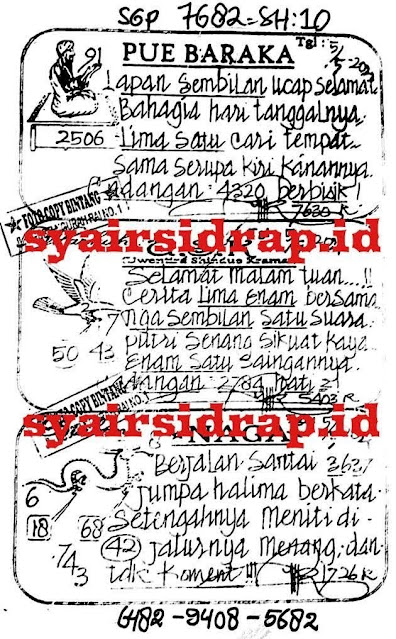 SGP 7682=SH:10
PUE BARAKA
Tgl: 5/5-20
Lapan Sembilan ucap Selamat
Bahagia hari tanggalnya.
2506
Lima Satu cari tempat..
Sama Serupa kiri Kanannya.
adangan 4320 berbisik!
7630 R
FOTO COPY BINTANG
syairsidrap.id
Selamat Malam tuan....!!
Cerita Lima Enam bersama
Sembilan Satu Suara.
7
50 43
Putri Senang Sikuat Kaya
Enam Satu Saingannya.
2784 hati 2!
5403 R
syairsidrap.id
NAGA
Berjalan Santai 3627
Jumpa halima berkata.
6
18
68
Setengahnya Meniti di -
743
42 Jalurnya Menang, dan
tdk Koment!!
R1726 R
6482 -9408-5682